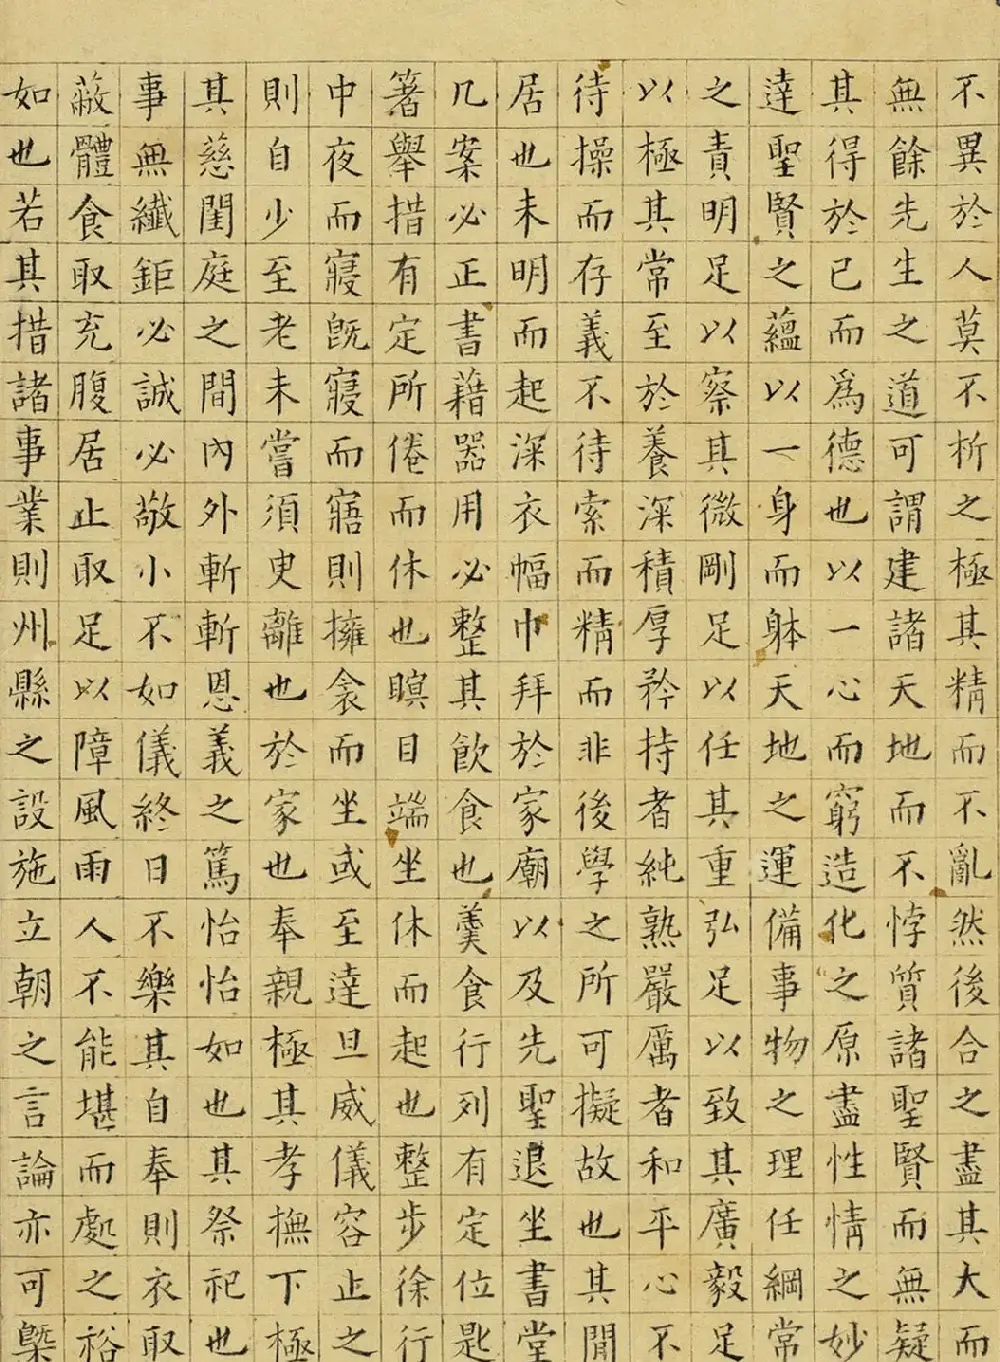 不異於人莫不析之極其精而不亂然後合之盡其大而
無餘先生之道可謂建諸天地而不悖質諸聖賢而無疑
其得於己而為德也以一心而窮造化之原盡性情之妙
達聖賢之蘊以一身而躰天地之運備事物之理任綱常
之責明足以察其微剛足以任其重弘足以致其廣毅足
以極其常至於養深積厚矜持者純熟嚴厲者和平心不
待操而存義不待索而精而非後學之所可擬故也其閒
居也未明而起深衣幅巾拜於家廟以及先聖退坐書堂
几案必正書藉器用必整其飲食也羹食行列有定位匙
箸舉措有定所倦而休也瞑目端坐休而起也整步徐行
中夜而寢旣寢而寤則擁衾而坐或至達旦威儀容止之
則自少至老未嘗須臾離也於家也奉親極其孝撫下極
其慈閨庭之間內外斬斬恩義之篤怡怡如也其祭祀也
事無纖鉅必誠必敬小不如儀終日不樂其自奉則衣取
蔽體食取充腹居止取足以障風雨人不能堪而處之裕
如也若其措諸事業則州縣之設施立朝之言論亦可槩